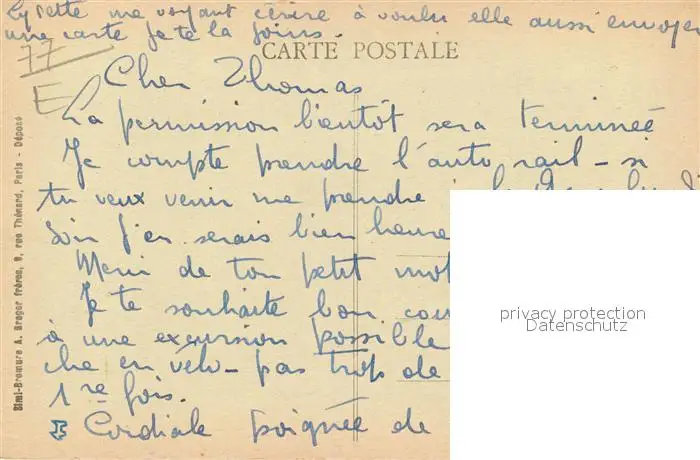 Lysette me voyant écrire à voulu elle aussi envoyer
une carte je te la joins.
77
E
CARTE POSTALE
Cher Thomas
La permission bientôt sera terminée
Je compte prendre l'auto rail - si
tu veux venir me prendre
soir j'en serais bien heure
Merci de ton petit mot
Je te souhaite bon cou
à une excursion possible
che en vélo - pas trop de
1re fois.
Cordiale poignée de
Simi-Bromure A. Breger frères, 9, rue Thénard, Paris - Déposé
privacy protection
Datenschutz